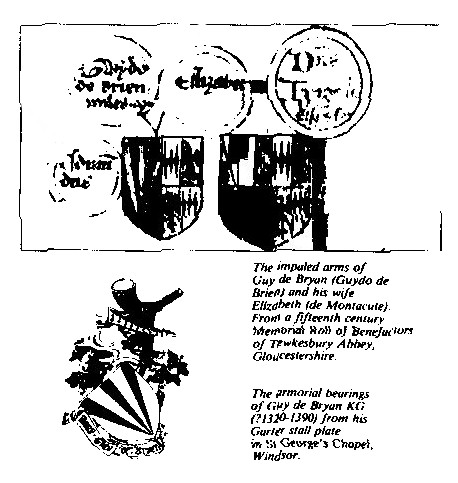 Guydo
de Brien
Elizabet
The impaled arms of
Guy de Bryan (Guydo de
Brien) and his wife
Elizabeth (de Montacute).
From a fifteenth century
Memorial Roll of Benefactors
of Tewkesbury Abbey,
Gloucestershire.
The armorial bearings
of Guy de Bryan KG
(?1320-1390) from his
Garter stall plate
in St George's Chapel,
Windsor.